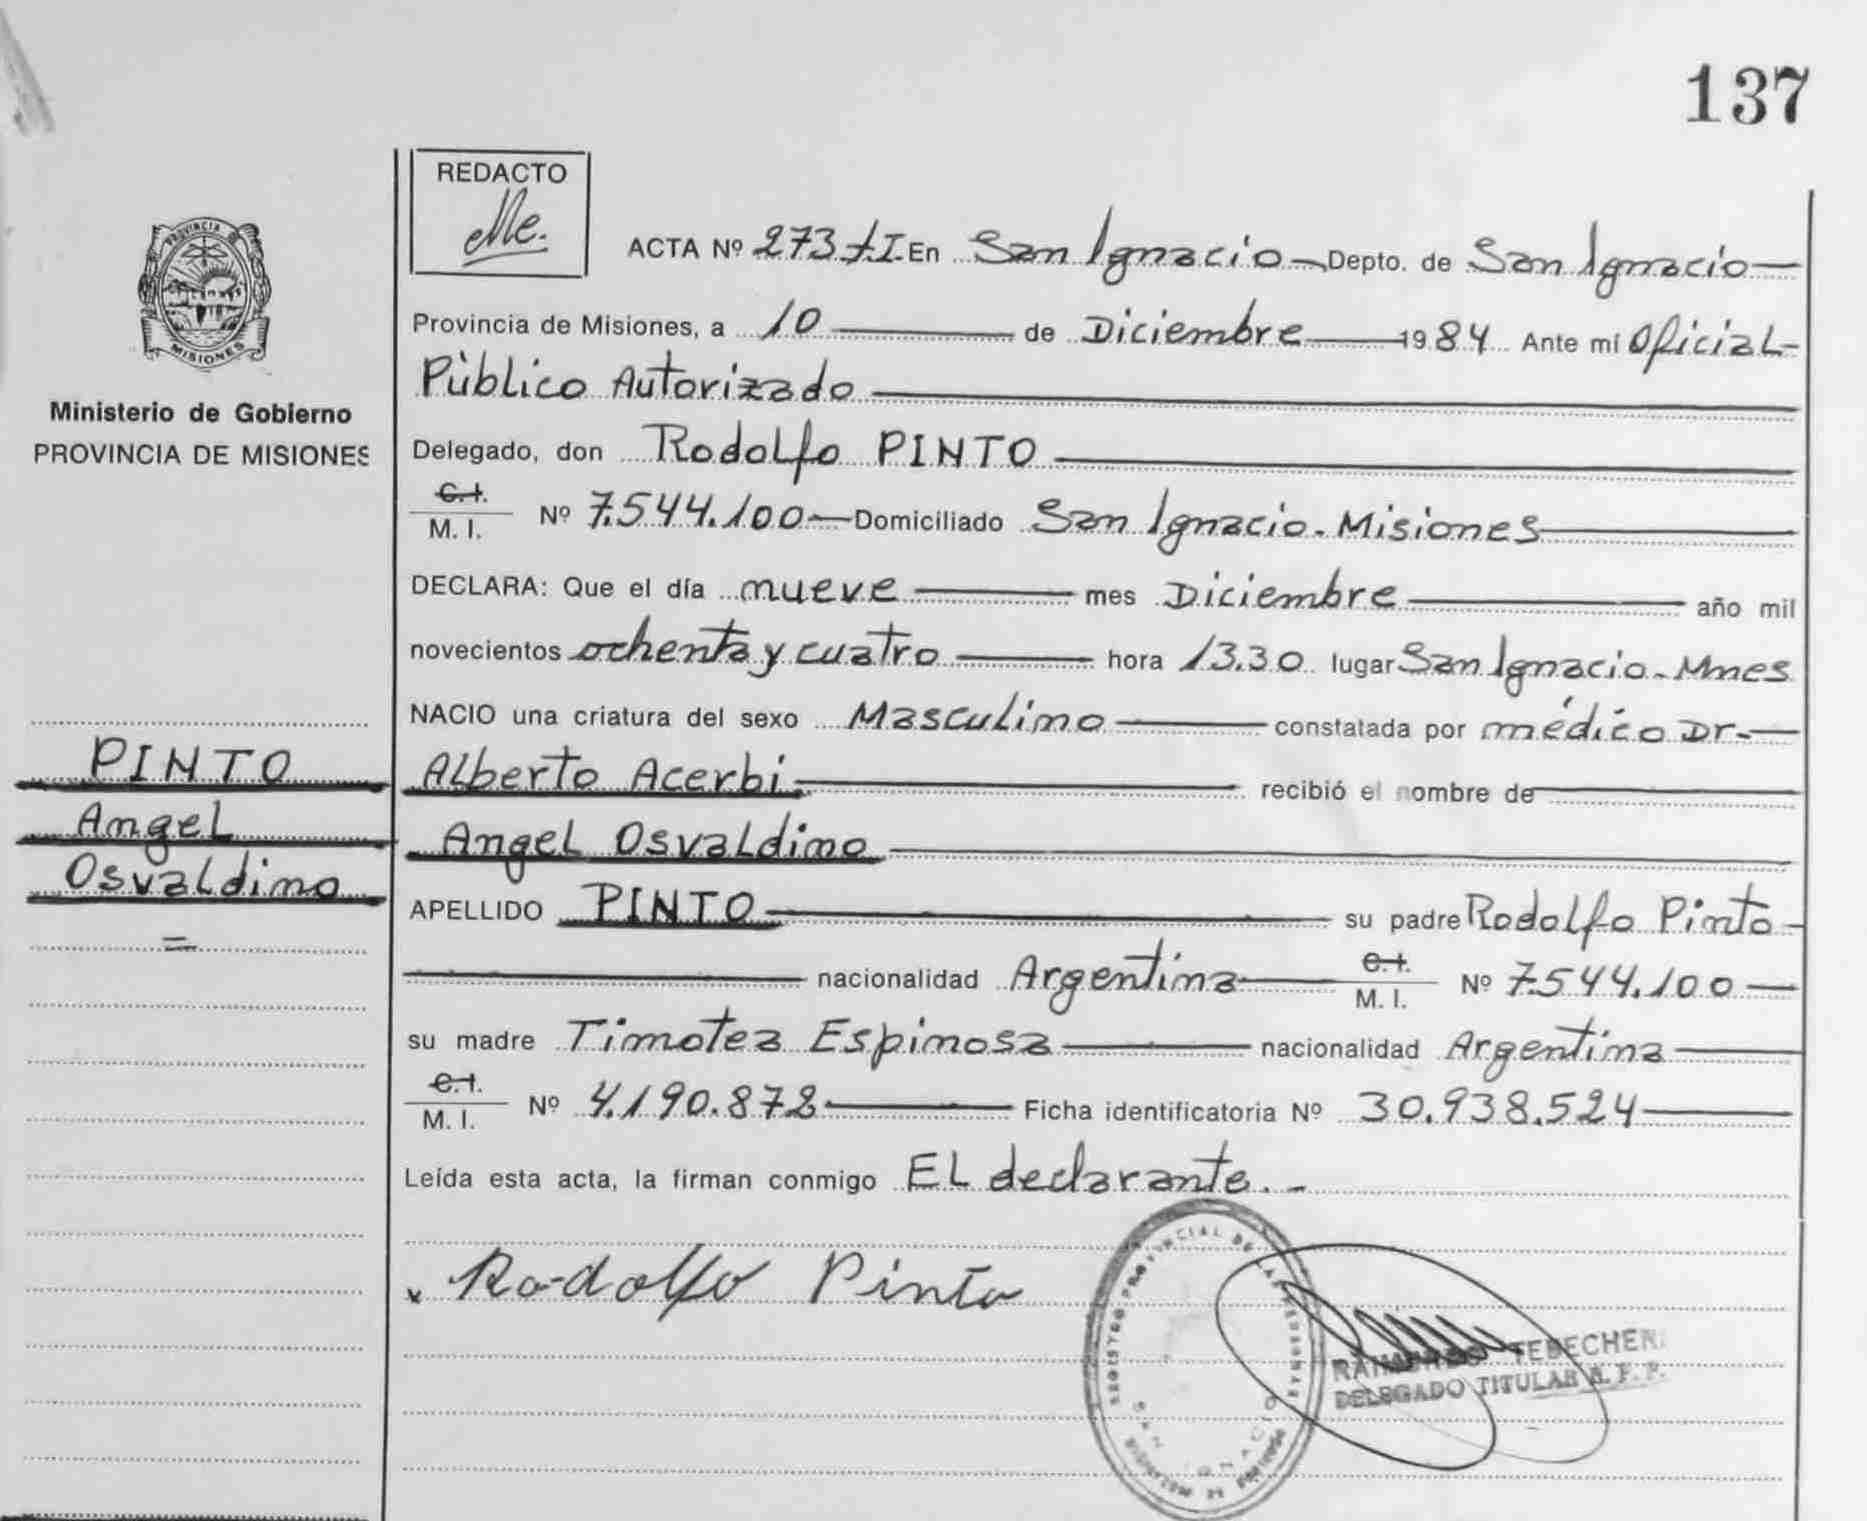 137
REDACTO
ACTA Nº 273 En San Ignacio Depto. de San Ignacio
Provincia de Misiones, a 10 de Diciembre 1984 Ante mi Oficial
Público Autorizado
Delegado, don Rodolfo PINTO
C.I.
M. I. Nº 7.544.100 Domiciliado San Ignacio. Misiones
DECLARA: Que el día nueve mes Diciembre año mil
novecientos ochenta y cuatro hora 13.30 lugar San Ignacio. Mnes
NACIO una criatura del sexo Masculino constatada por médico Dr.
Alberto Acerbi. recibió el nombre de
Angel Osvaldino
APELLIDO PINTO su padre Rodolfo Pinto
nacionalidad Argentina C.I. M. I. Nº 7.544.100
su madre Timotea Espinosa nacionalidad Argentina
C.I.
M. I. Nº 4.190.878 Ficha identificatoria Nº 30.938.524
Leída esta acta, la firman conmigo EL declarante.-
Rodolfo Pinto
PROVINCIA DE
MISIONES
Ministerio de Gobierno
PROVINCIA DE MISIONES
PINTO
Angel
Osvaldino
=
REGISTRO PROVINCIAL DE LAS PERSONAS
SAN IGNACIO
DELEGADO TITULAR